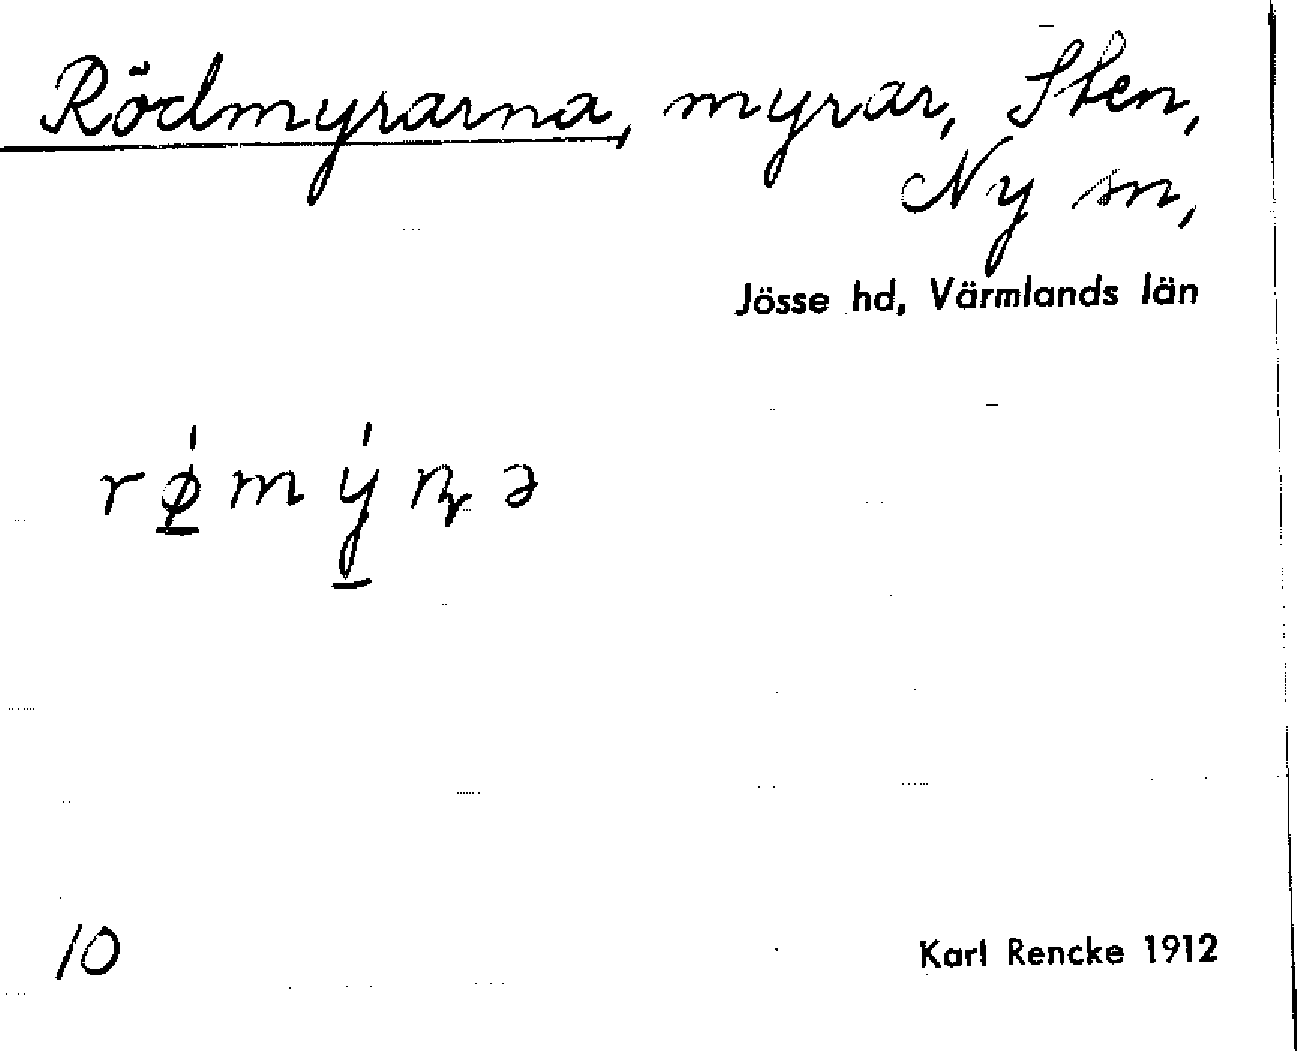 Rödmyrarna, myrar, Sten,
Ny sn,
Jösse hd, Värmlands län
rǿ̱mý̱ɳə
10
Karl Rencke 1912